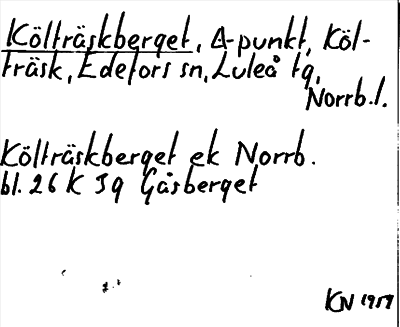 Költräskberget, Δ-punkt, Köl-
träsk, Edefors sn, Luleå tg,
Norrb.l.
Költräskberget ek Norrb.
bl. 26 K 5g Gåsberget
KN 1959